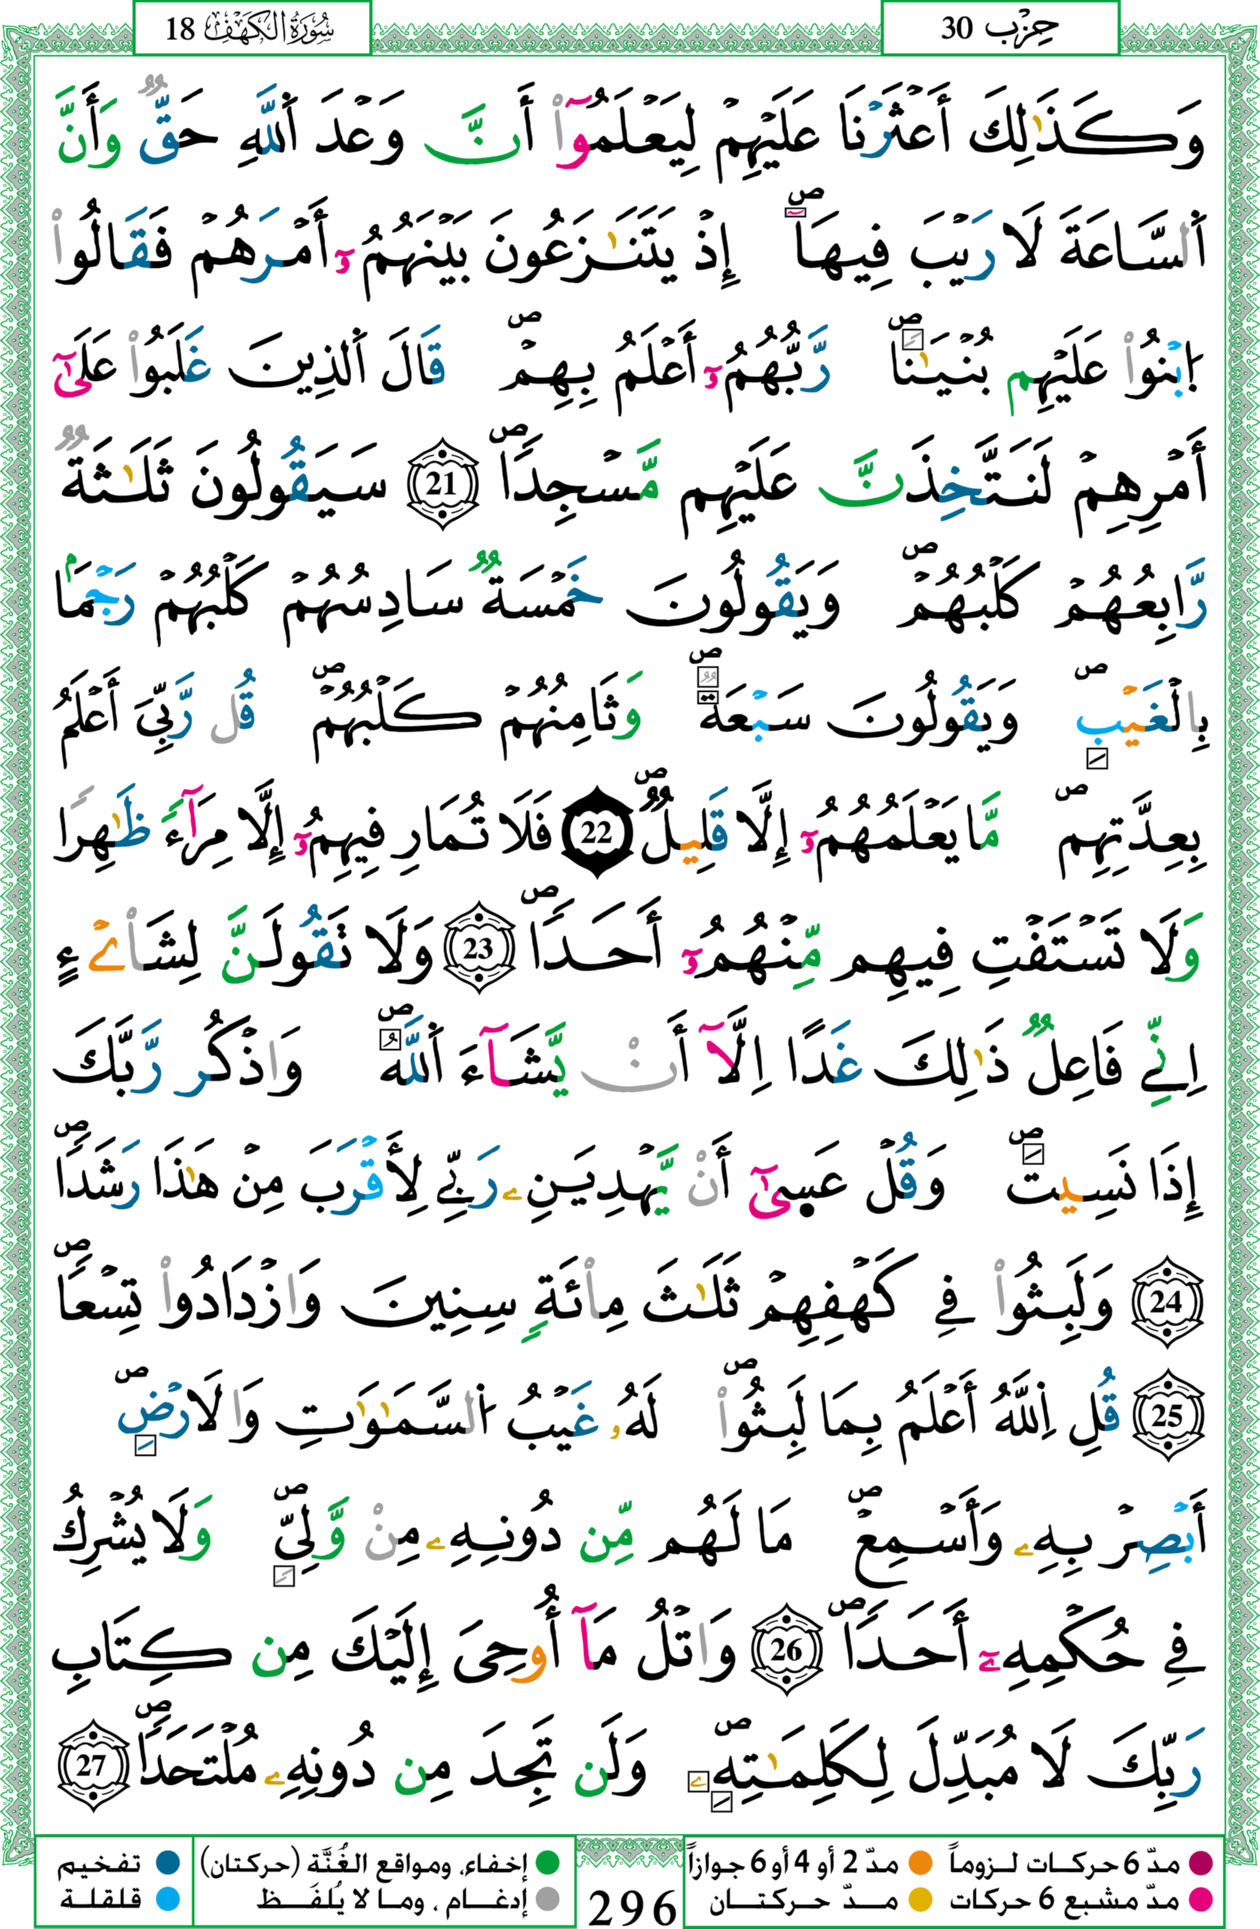 سُورَةُ الكَهْفِ 18
حِزْب 30
وَكَذَٰلِكَ أَعْثَرْنَا عَلَيْهِمْ لِيَعْلَمُوٓاْ أَنَّ وَعْدَ اَ۬للَّهِ حَقّٞ وَأَنَّ
اَ۬لسَّاعَةَ لَا رَيْبَ فِيهَآۖ إِذْ يَتَنَٰزَعُونَ بَيْنَهُمُۥٓ أَمْرَهُمْ فَقَالُواْ
اُ۪بْنُواْ عَلَيْهِم بُنْيَٰناٗۖ رَّبُّهُمُۥٓ أَعْلَمُ بِهِمْۖ قَالَ اَ۬لذِينَ غَلَبُواْ عَلَيٰٓ
أَمْرِهِمْ لَنَتَّخِذَنَّ عَلَيْهِم مَّسْجِداٗۖ 21 سَيَقُولُونَ ثَلَٰثَةٞ
رَّابِعُهُمْ كَلْبُهُمْۖ وَيَقُولُونَ خَمْسَةٞ سَادِسُهُمْ كَلْبُهُمْ رَجْماَۢ
بِالْغَيْبِۖ وَيَقُولُونَ سَبْعَةٞۖ وَثَامِنُهُمْ كَلْبُهُمْۖ قُل رَّبِّيَ أَعْلَمُ
بِعِدَّتِهِمۖ مَّا يَعْلَمُهُمُۥٓ إِلَّا قَلِيلٞۖ 22 فَلَا تُمَارِ فِيهِمُۥٓ إِلَّا مِرَآءٗ ظَٰهِراٗ
وَلَا تَسْتَفْتِ فِيهِم مِّنْهُمُۥٓ أَحَداٗۖ 23 وَلَا تَقُولَنَّ لِشَاْےْءٍ
اِنِّے فَاعِلٞ ذَٰلِكَ غَداً اِلَّآ أَنْ يَّشَآءَ اَ۬للَّهُۖ وَاذْكُر رَّبَّكَ
إِذَا نَسِيتَۖ وَقُلْ عَس۪يٰٓ أَنْ يَّهْدِيَنِۦ رَبِّے لِأَقْرَبَ مِنْ هَٰذَا رَشَداٗۖ
24 وَلَبِثُواْ فِے كَهْفِهِمْ ثَلَٰثَ مِاْئَةٖ سِنِينَ وَازْدَادُواْ تِسْعاٗۖ
25 قُلِ اِ۬للَّهُ أَعْلَمُ بِمَا لَبِثُواْۖ لَهُۥ غَيْبُ اُ۬لسَّمَٰوَٰتِ وَالَارْضِۖ
أَبْصِرْ بِهِۦ وَأَسْمِعْۖ مَا لَهُم مِّن دُونِهِۦ مِنْ وَّلِيّٖۖ وَلَا يُشْرِكُ
فِے حُكْمِهِۦٓ أَحَداٗۖ 26 وَاتْلُ مَآ أُوحِيَ إِلَيْكَ مِن كِتَابِ
رَبِّكَ لَا مُبَدِّلَ لِكَلِمَٰتِهِۦۖ وَلَن تَجِدَ مِن دُونِهِۦ مُلْتَحَداٗۖ 27
مدّ 6 حركات لـزوماً مدّ 2 أو 4 أو 6 جوازاً إخفاء، ومواقع الغُنَّة (حركتان) تفخيم
مدّ مشبع 6 حركات مـدّ حـركتـان إدغـام ، ومـا لا يُلفَـظ قلقلة
296